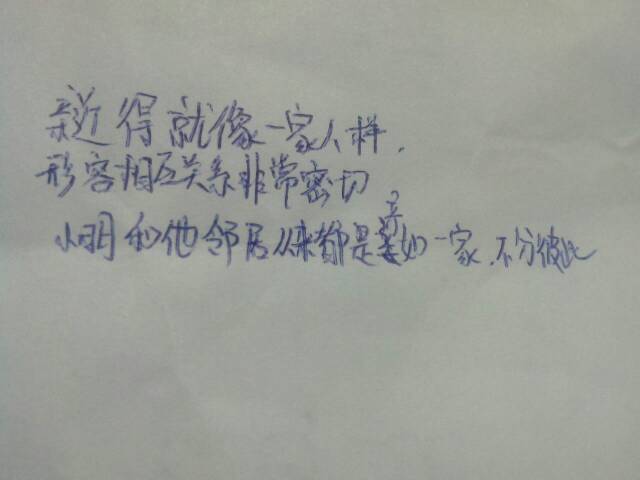 亲近得就像一家人样.
形容相互关系非常密切
小明和他邻居从来都是如一家.不分彼此